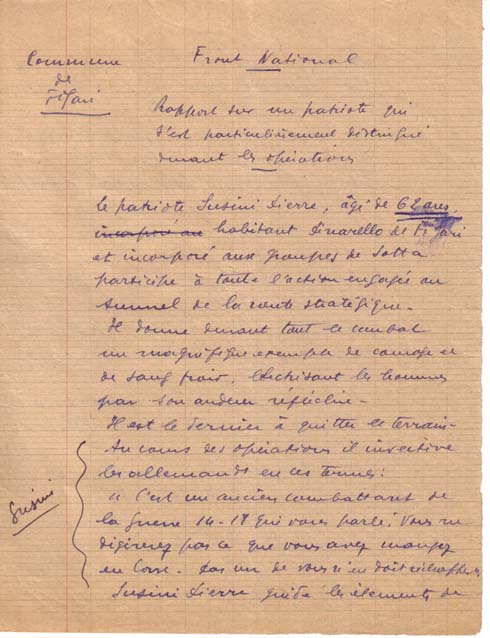 Commune
de
Figari
Front National
Rapport sur un patriote qui
s'est particulièrement distingué
durant les opérations
Le patriote Susini Pierre, âgé de 62 ans,
incorporé au habitant Pinarello de Figari
et incorporé aux groupes de Sotta
participe à toute l'action engagée au
tunnel de la route stratégique.
Il donne durant tout le combat
un magnifique exemple de courage et
de sang froid, électrisant les hommes
par son ardeur réfléchie.
Il est le dernier à quitter le terrain.
Au cours des opérations il invective
les allemands en ces termes :
"C'est un ancien combattant de
la Guerre 14-18 qui vous parle, Vous ne
digirerez pas ce que vous avez mangé
en Corse. Pas un de vous n'en doit réchapper
Susini
Susini Pierre guide les éléments de